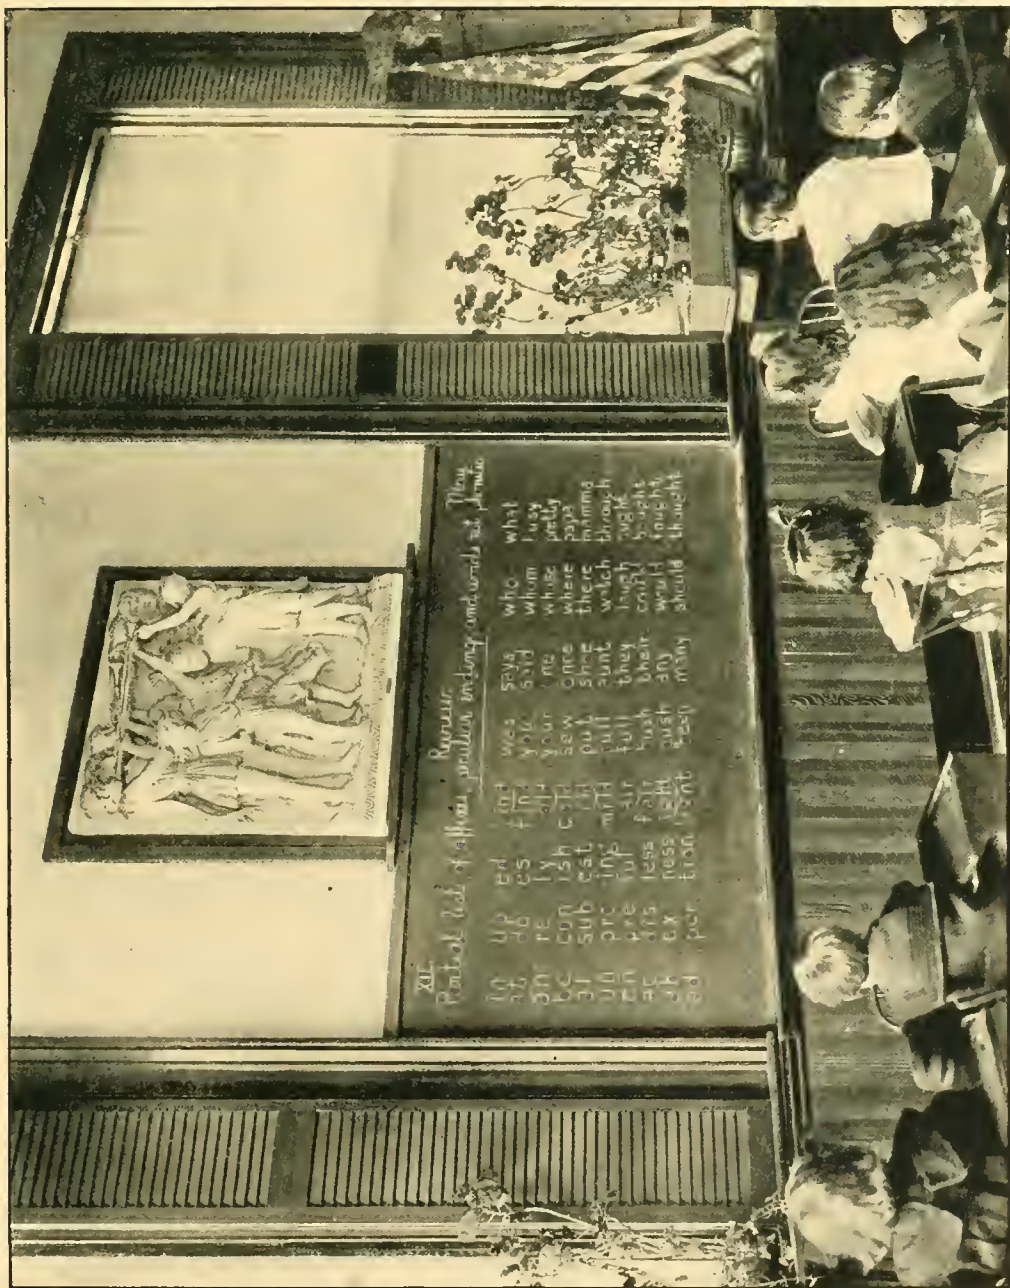 XII Review
Partial list of affixes, peculiar endings and words not phonic.
in up ed ind was says who what
at es find you said whom busy
an re ly old your one whose pretty
be con ish cold sew once where papa
al sub est ild put shoe there mamma
un pro ing mild pull aunt watch through
en pre ful air full they laugh ought
dis less fair bush their could bought
ab ex ness ight push any would fought
ad per tion been many should thought